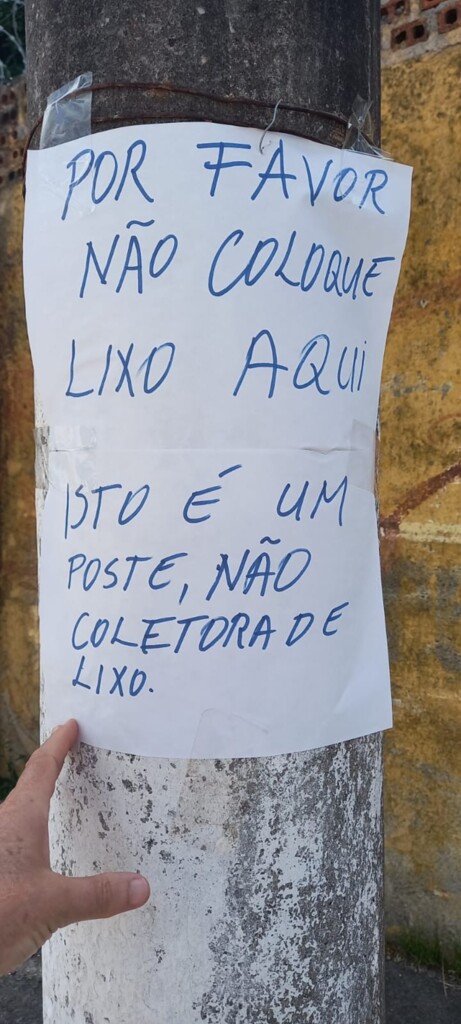 POR FAVOR
NÃO COLOQUE
LIXO AQUI
ISTO É UM
POSTE, NÃO
COLETORA DE
LIXO.